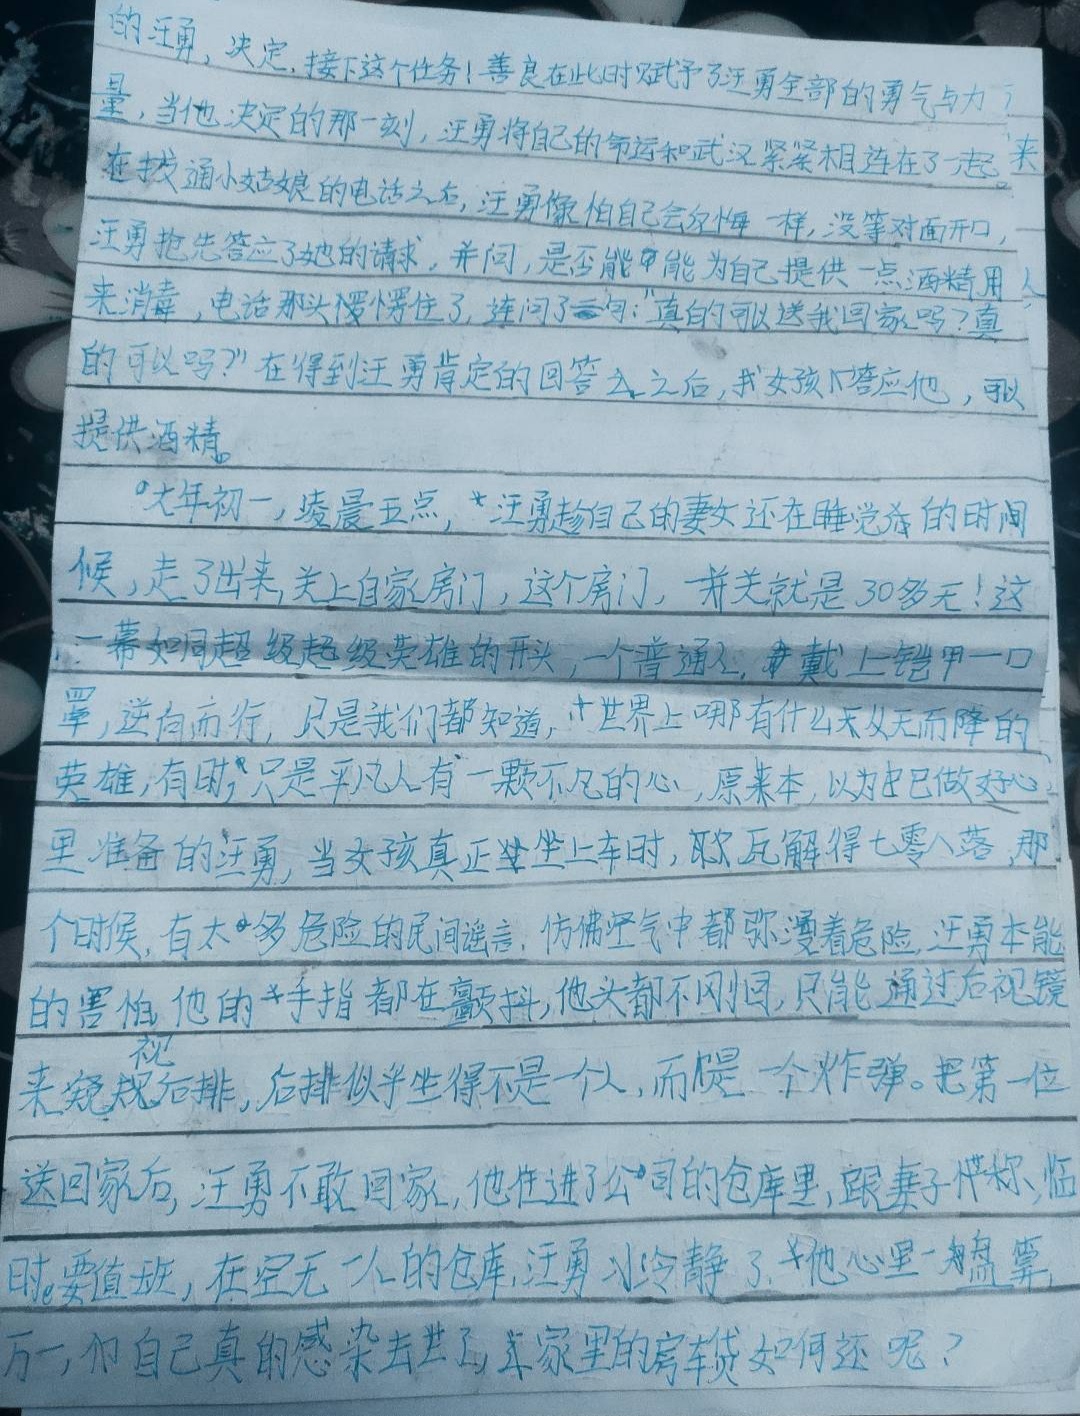 的汪勇，决定，接下这个任务！善良在此时赋予了汪勇全部的勇气与力
量，当他决定的那一刻，汪勇将自己的命运和武汉紧紧相连在了一起。
在拨通小姑娘的电话之后，汪勇像怕自己会反悔一样，没等对面开口，
汪勇抢先答应了她的请求，并问，是否能能为自己提供一点酒精用
来消毒，电话那头愣住了，连问了：“真的可以送我回家吗？真
的可以吗？”在得到汪勇肯定的回答之后，女孩答应他，可以
提供酒精。
大年初一，凌晨五点，汪勇趁自己的妻女还在睡觉的时间
候，走了出来，关上自家房门，这个房门，一关就是30多天！这
一幕如同超级超级英雄的开头，一个普通人，戴上铠甲一口
罩，逆向而行，只是我们都知道，世界上哪有什么从天而降的
英雄，有时，只是平凡人有一颗不凡的心，原本，以为自己做好心
里准备的汪勇，当女孩真正坐上车时，瓦解得七零八落，那
个时候，有太多危险的民间谣言，仿佛空气中都弥漫着危险，汪勇本能
的害怕，他的手指都在颤抖，他头都不敢回，只能通过后视镜
视
来窥后排，后排似乎坐得不是一个人，而是一个炸弹。把第一位
送回家后，汪勇不敢回家，他住进了公司的仓库里，跟妻子谎称，临
时要值班，在空无一人的仓库，汪勇冷静了，他心里一盘算，
万一，自己真的感染去世了，家里的房车贷如何还呢？